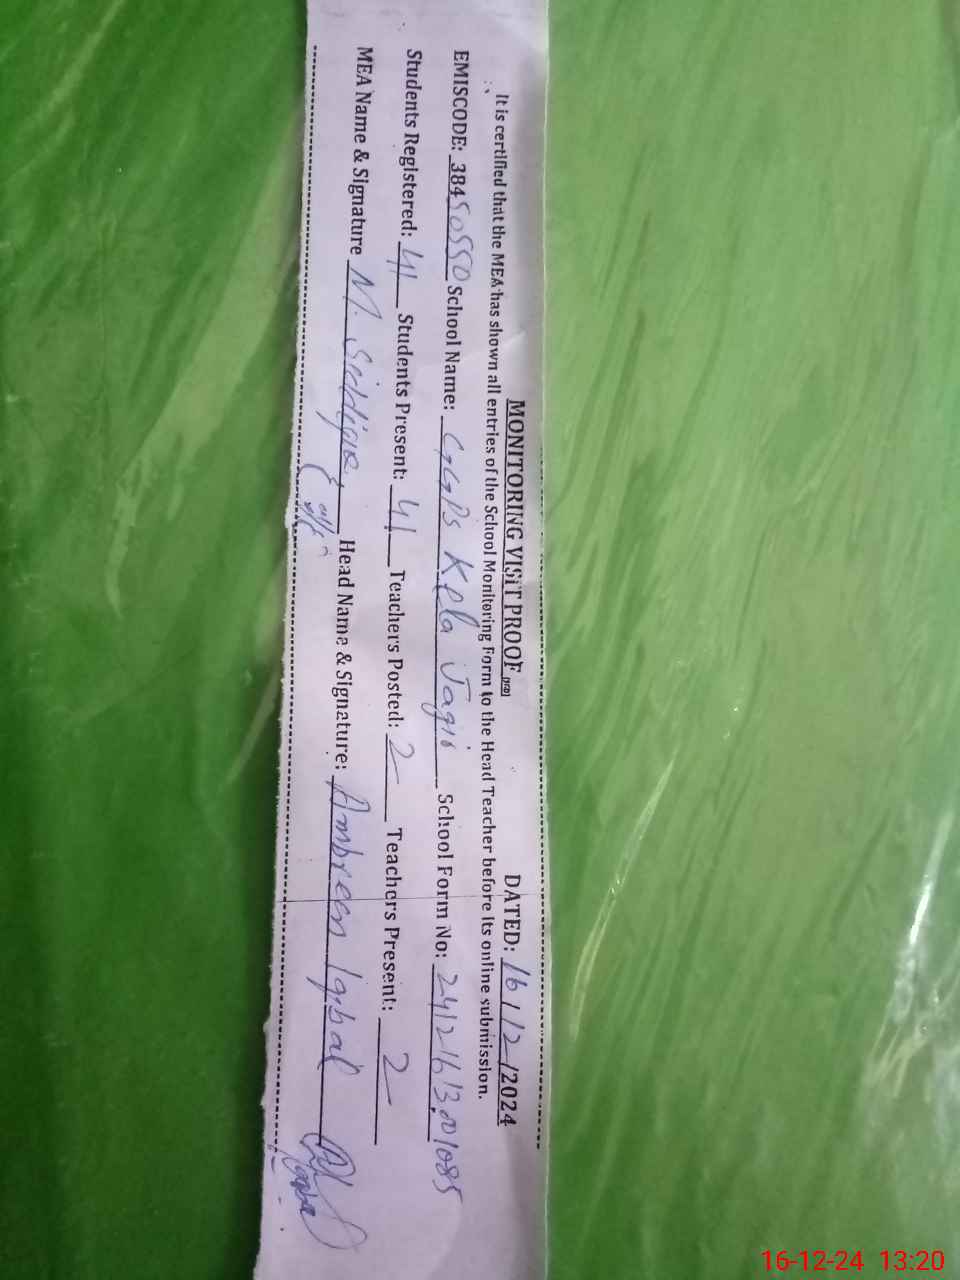 MONITORING VISIT PROOF (PEO) DATED: 16/12/2024
It is certified that the MEA has shown all entries of the School Monitoring Form to the Head Teacher before its online submission.
EMISCODE: 38450550 School Name: GGPS Kela Jagir School Form No: 24121613001085
Students Registered: 41 Students Present: 41 Teachers Posted: 2 Teachers Present: 2
MEA Name & Signature M. Siddique Head Name & Signature: Ambreen Iqbal
16-12-24 13:20